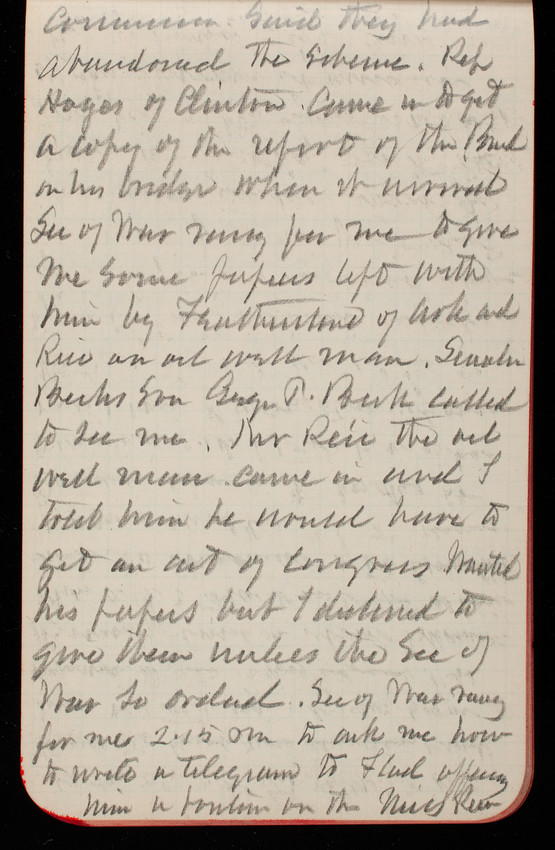 Common. Said they had
abandoned the scheme. Rep
Hayes of Clinton. Came in to get
a copy of the report of the Board
on his bridge when it arrived
Sec of War rang for me to give
me some papers left with
him by Featherstone of Ark and
Rice an oil well man. Senator
Becks Son George T. Beck called
to see me. Mr Rice the oil
well man came in and I
told him he would have to
get an act of Congress Wanted
his papers but I declined to
give them unless the Sec of
War so ordered. Sec of War rang
for me 2.15 PM to ask me how
to write a telegram to Flad offering
him a position on the Miss River